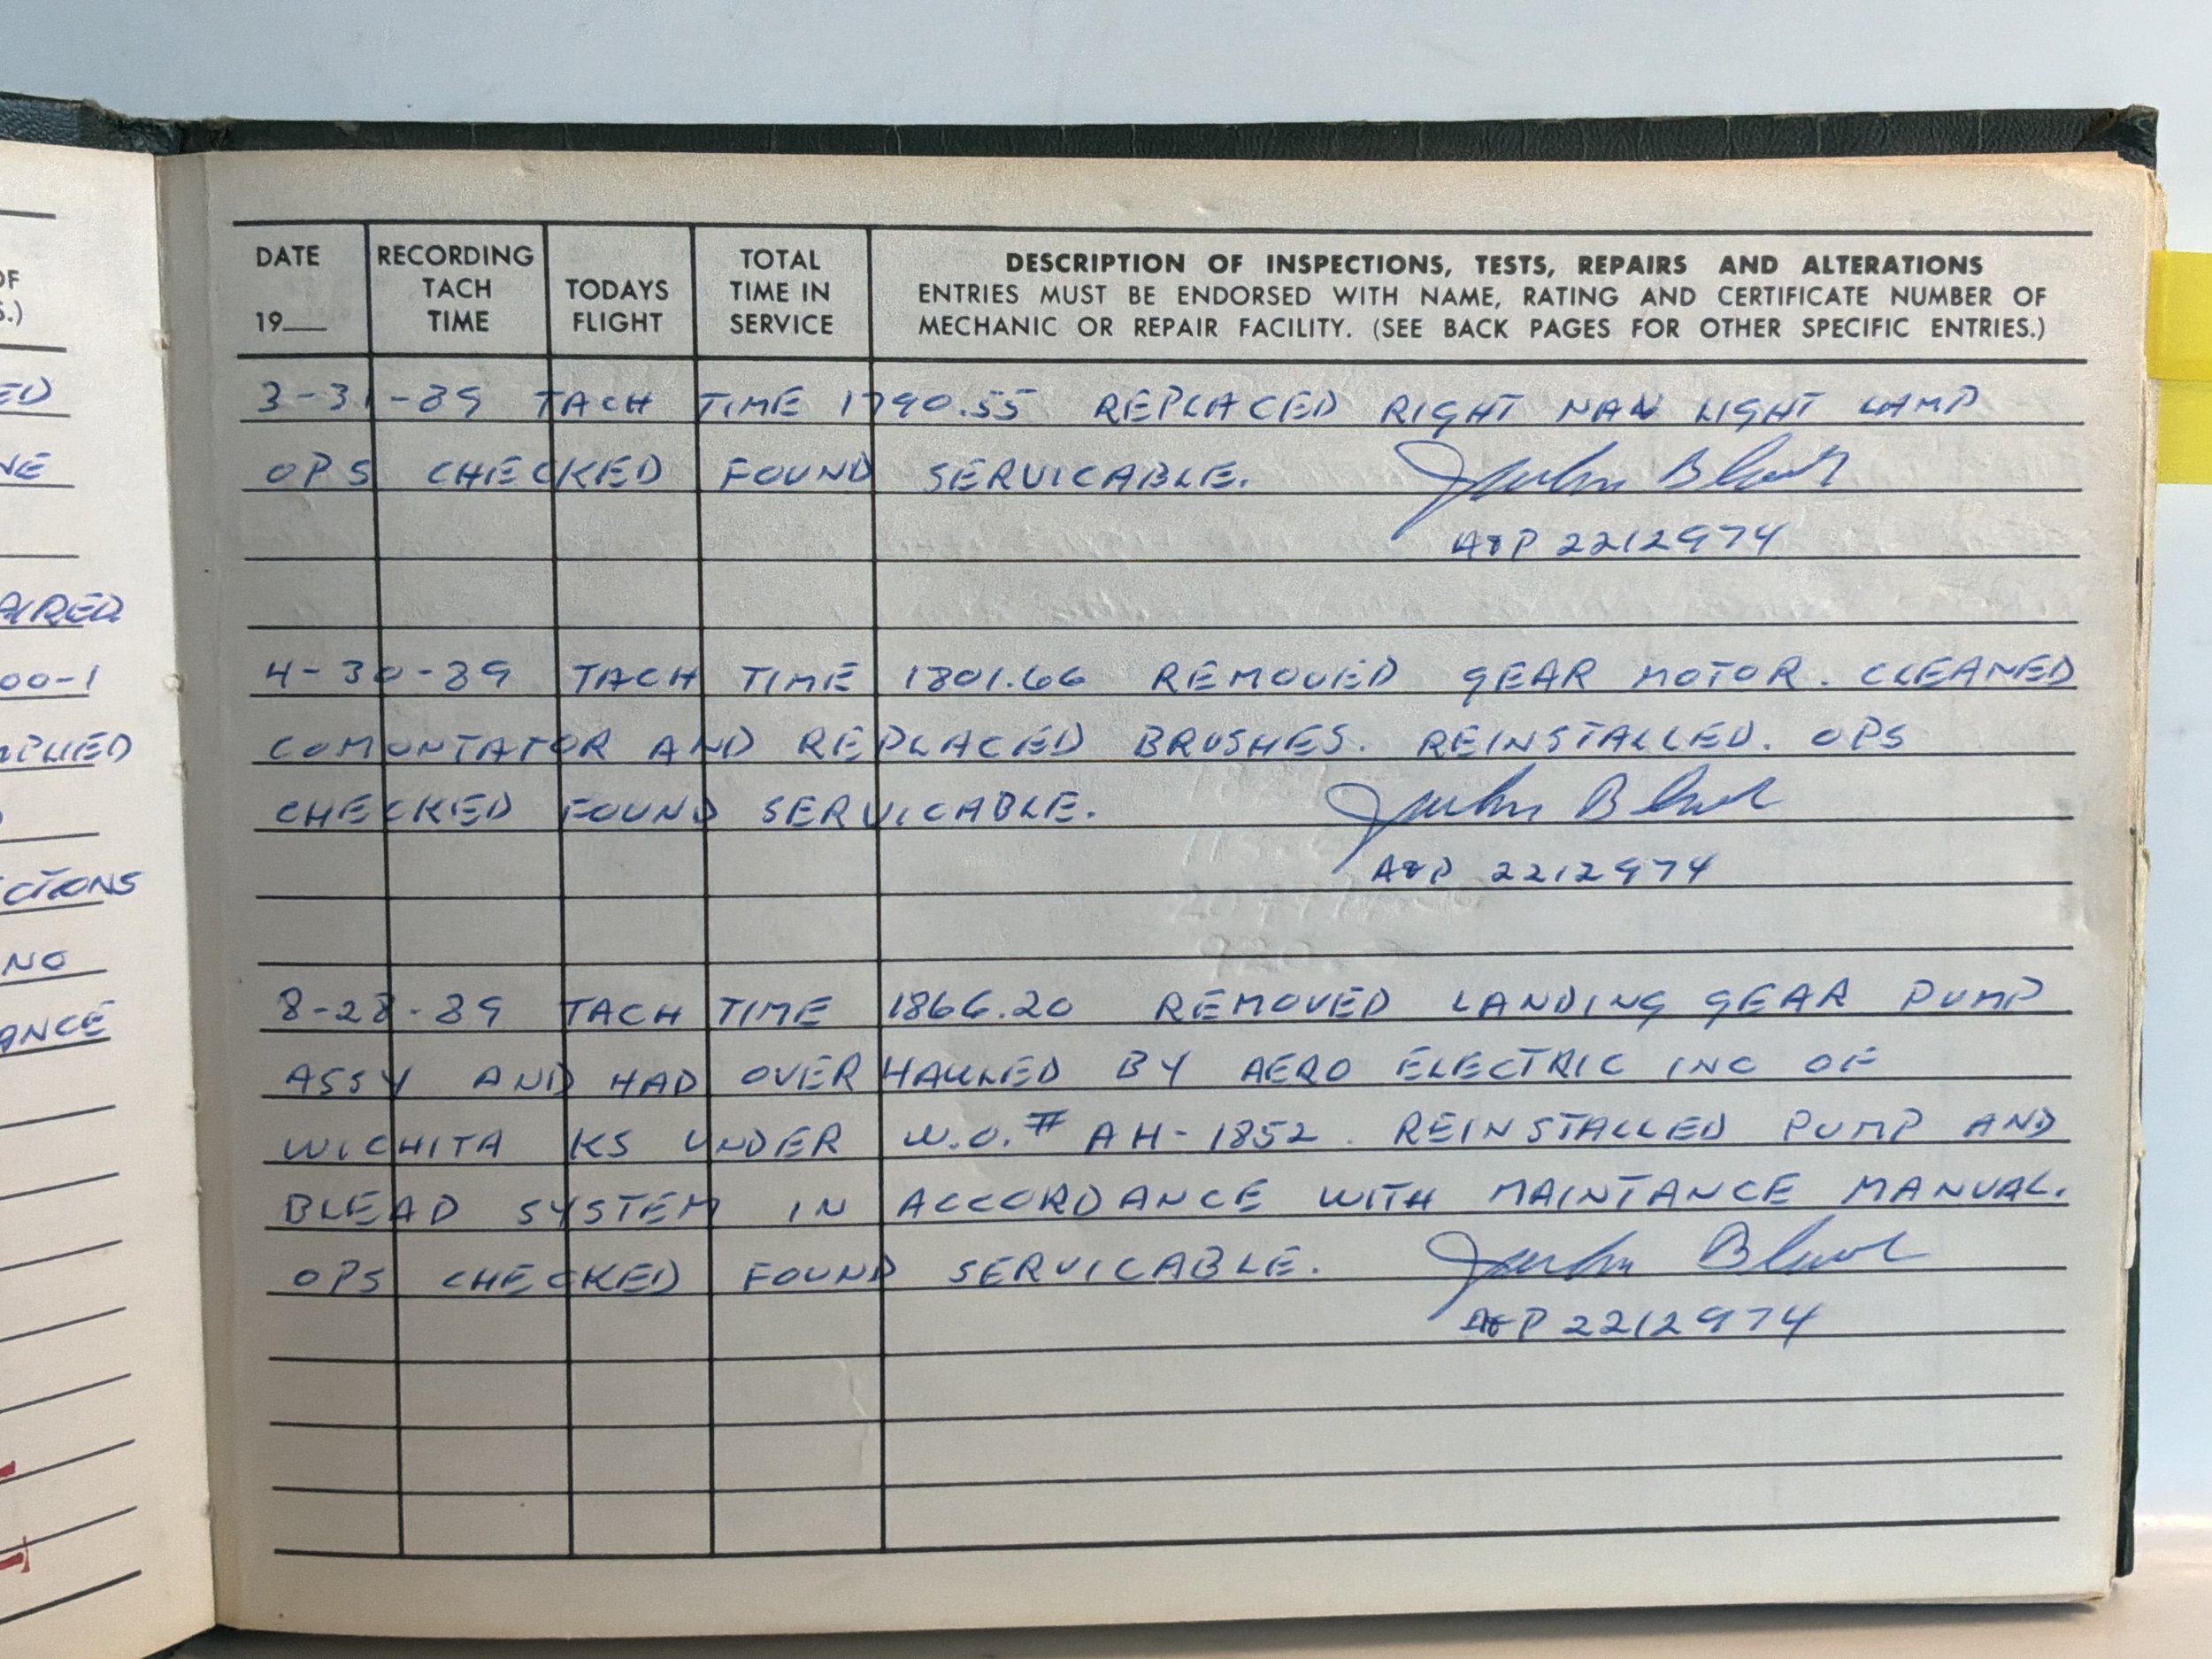 OF
S.)
ED
NE
AIRED
00-1
PLIED
CTIONS
NO
ANCE
DATE
19___
RECORDING
TACH
TIME
TODAYS
FLIGHT
TOTAL
TIME IN
SERVICE
DESCRIPTION OF INSPECTIONS, TESTS, REPAIRS AND ALTERATIONS
ENTRIES MUST BE ENDORSED WITH NAME, RATING AND CERTIFICATE NUMBER OF
MECHANIC OR REPAIR FACILITY. (SEE BACK PAGES FOR OTHER SPECIFIC ENTRIES.)
3-31-89 TACH TIME 1790.55 REPLACED RIGHT NAV LIGHT LAMP
OPS CHECKED FOUND SERVICABLE.
A&P 2212974
4-30-89 TACH TIME 1801.66 REMOVED GEAR MOTOR. CLEANED
COMUNTATOR AND REPLACED BRUSHES. REINSTALLED. OPS
CHECKED FOUND SERVICABLE.
A&P 2212974
8-28-89 TACH TIME 1866.20 REMOVED LANDING GEAR PUMP
ASSY AND HAD OVERHAULED BY AERO ELECTRIC INC OF
WICHITA KS UNDER W.O.# AH-1852. REINSTALLED PUMP AND
BLEAD SYSTEM IN ACCORDANCE WITH MAINTANCE MANUAL.
OPS CHECKED FOUND SERVICABLE.
A&P 2212974